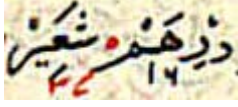 درهم شعير
١٦